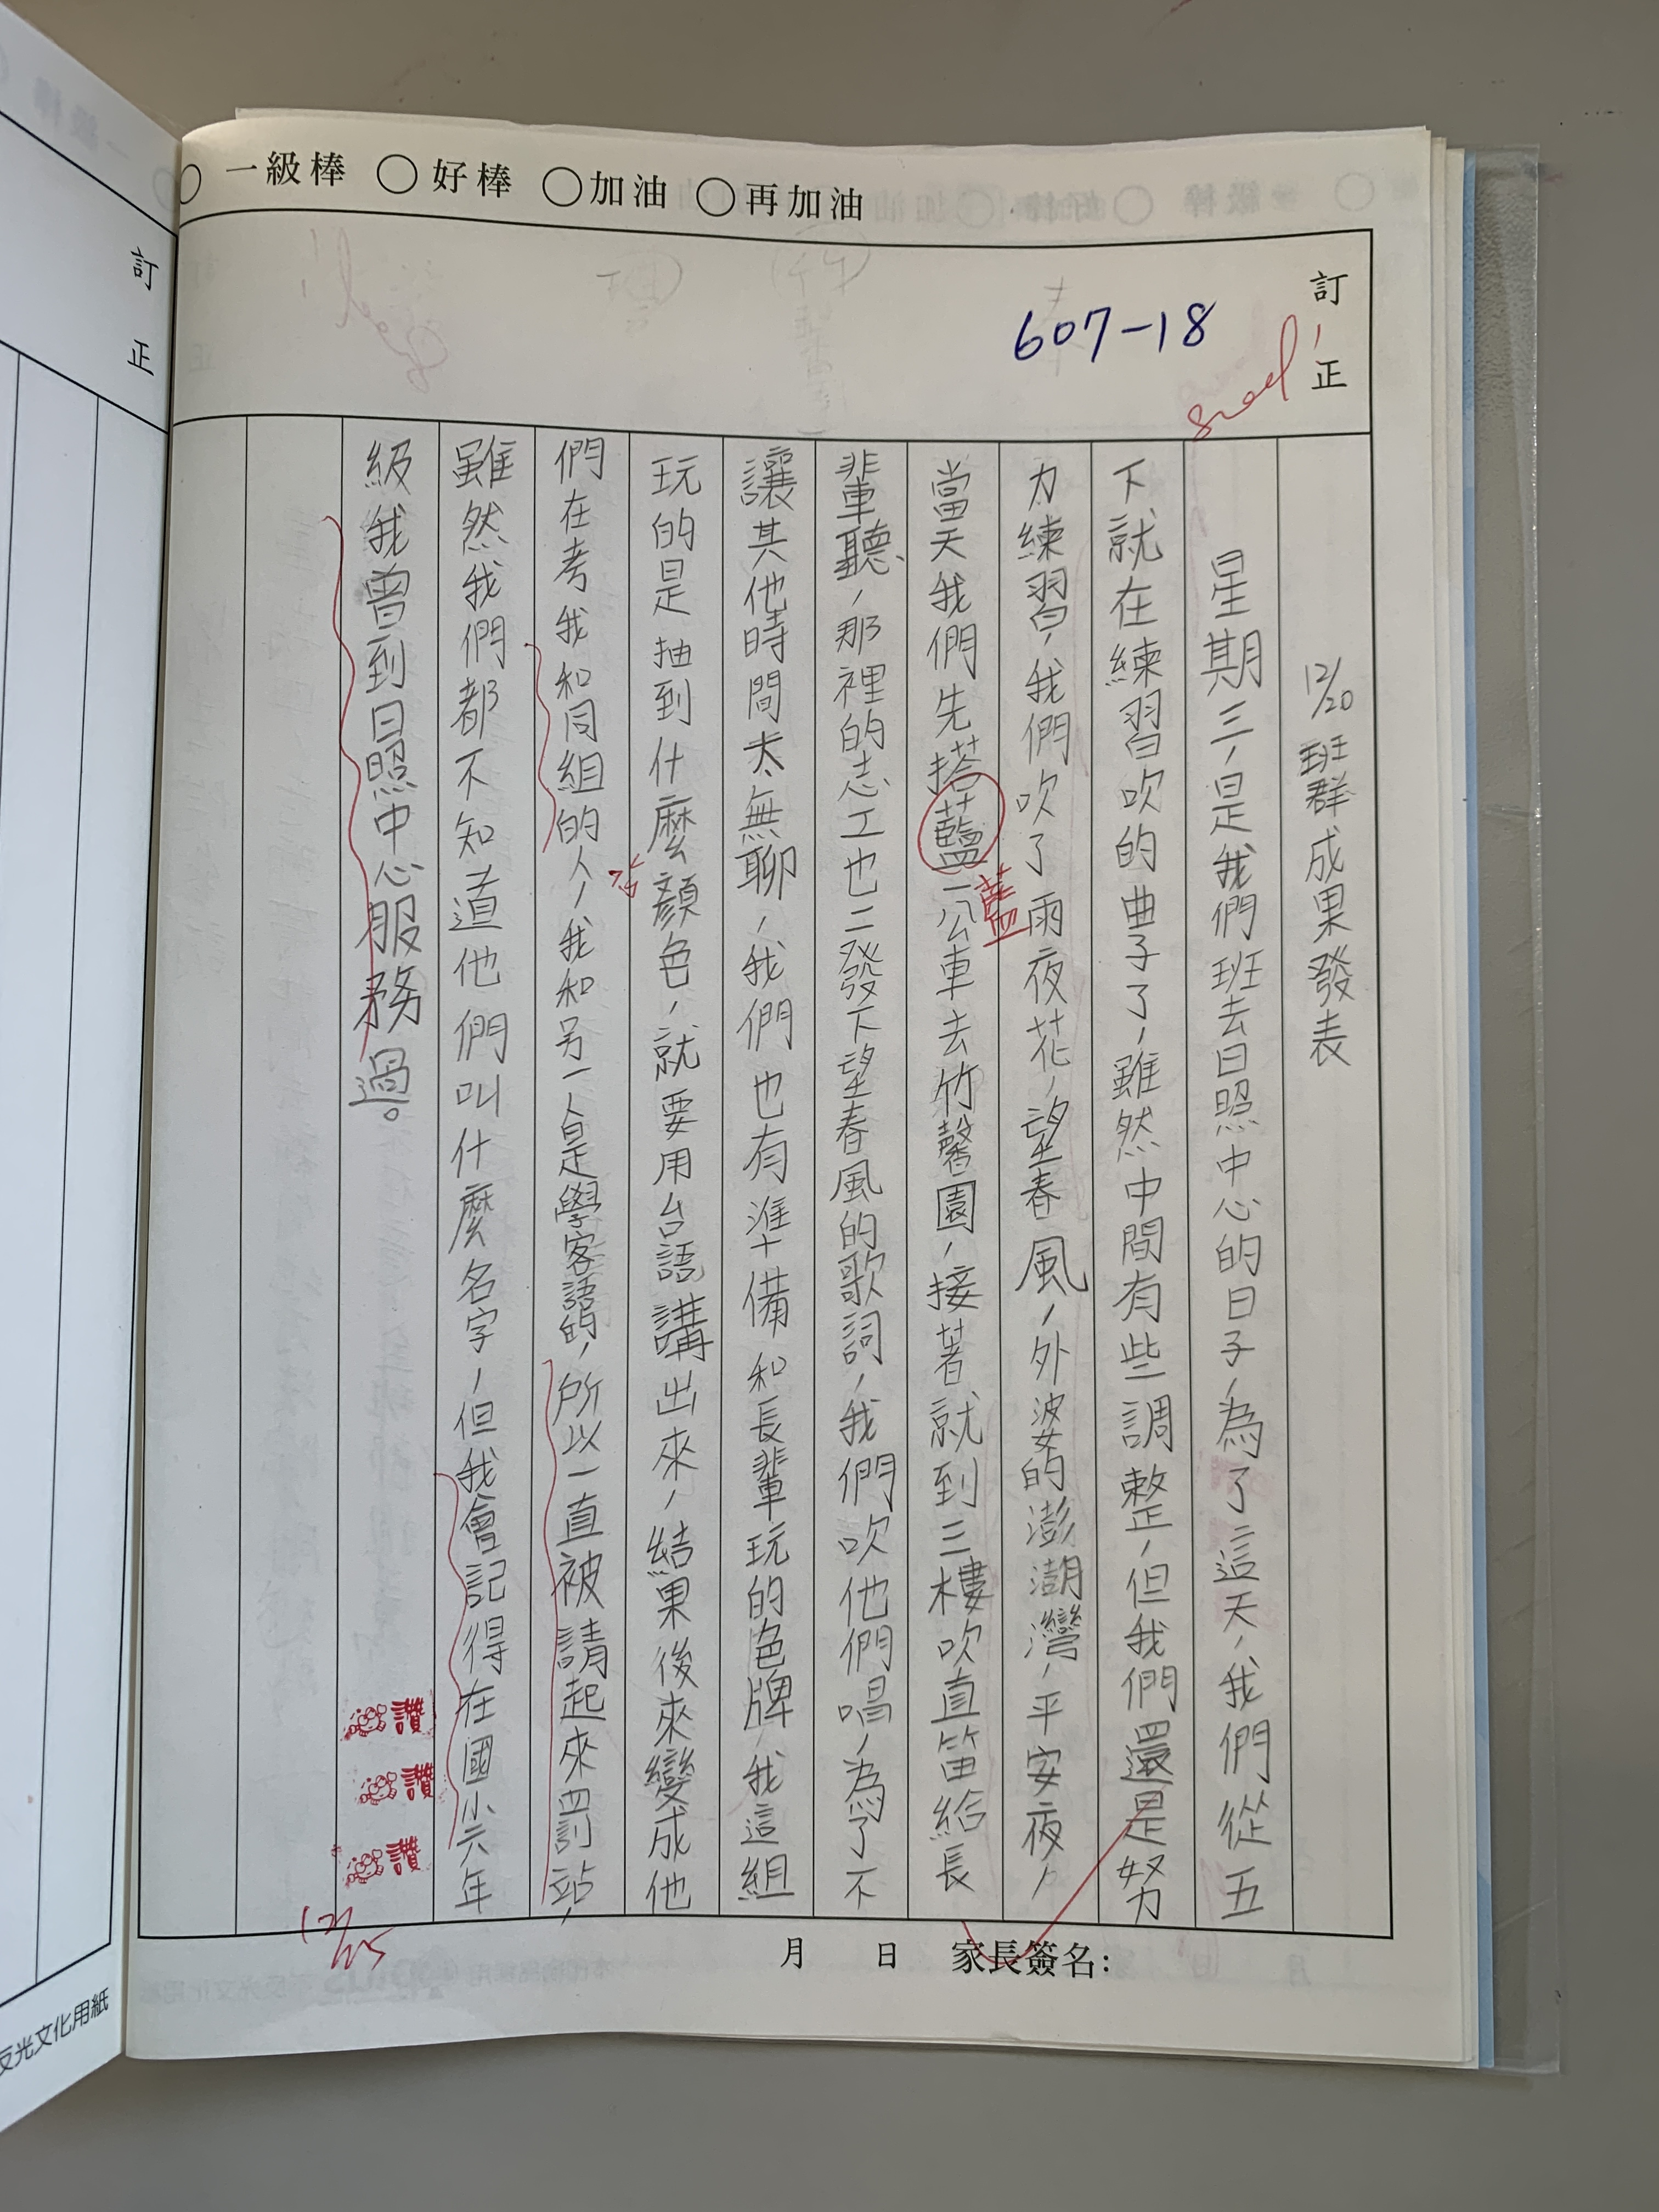 一級棒 ○好棒 ○加油 ○再加油
訂正
good!
607-18
12/20 班群成果發表
星期三,是我們班去日照中心的日子,為了這天,我們從五
下就在練習吹的曲子了,雖然中間有些調整,但我們還是努
力練習,我們吹了雨夜花,望春風,外婆的澎湖灣,平安夜,
當天我們先搭藍一公車去竹馨園,接著就到三樓吹直笛給長
藍
輩聽,那裡的志工也二發下望春風的歌詞,我們吹他們唱,為了不
讓其他時間太無聊,我們也有準備和長輩玩的色牌,我這組
玩的是抽到什麼顏色,就要用台語講出來,結果後來變成他
們在考我和同組的人,我和另一人是學客語的,所以一直被請起來罰站,
雖然我們都不知道他們叫什麼名字,但我會記得在國小六年
級我曾到日照中心服務過。
讚
讚
讚
12/25
月 日 家長簽名:
訂正
反光文化用紙